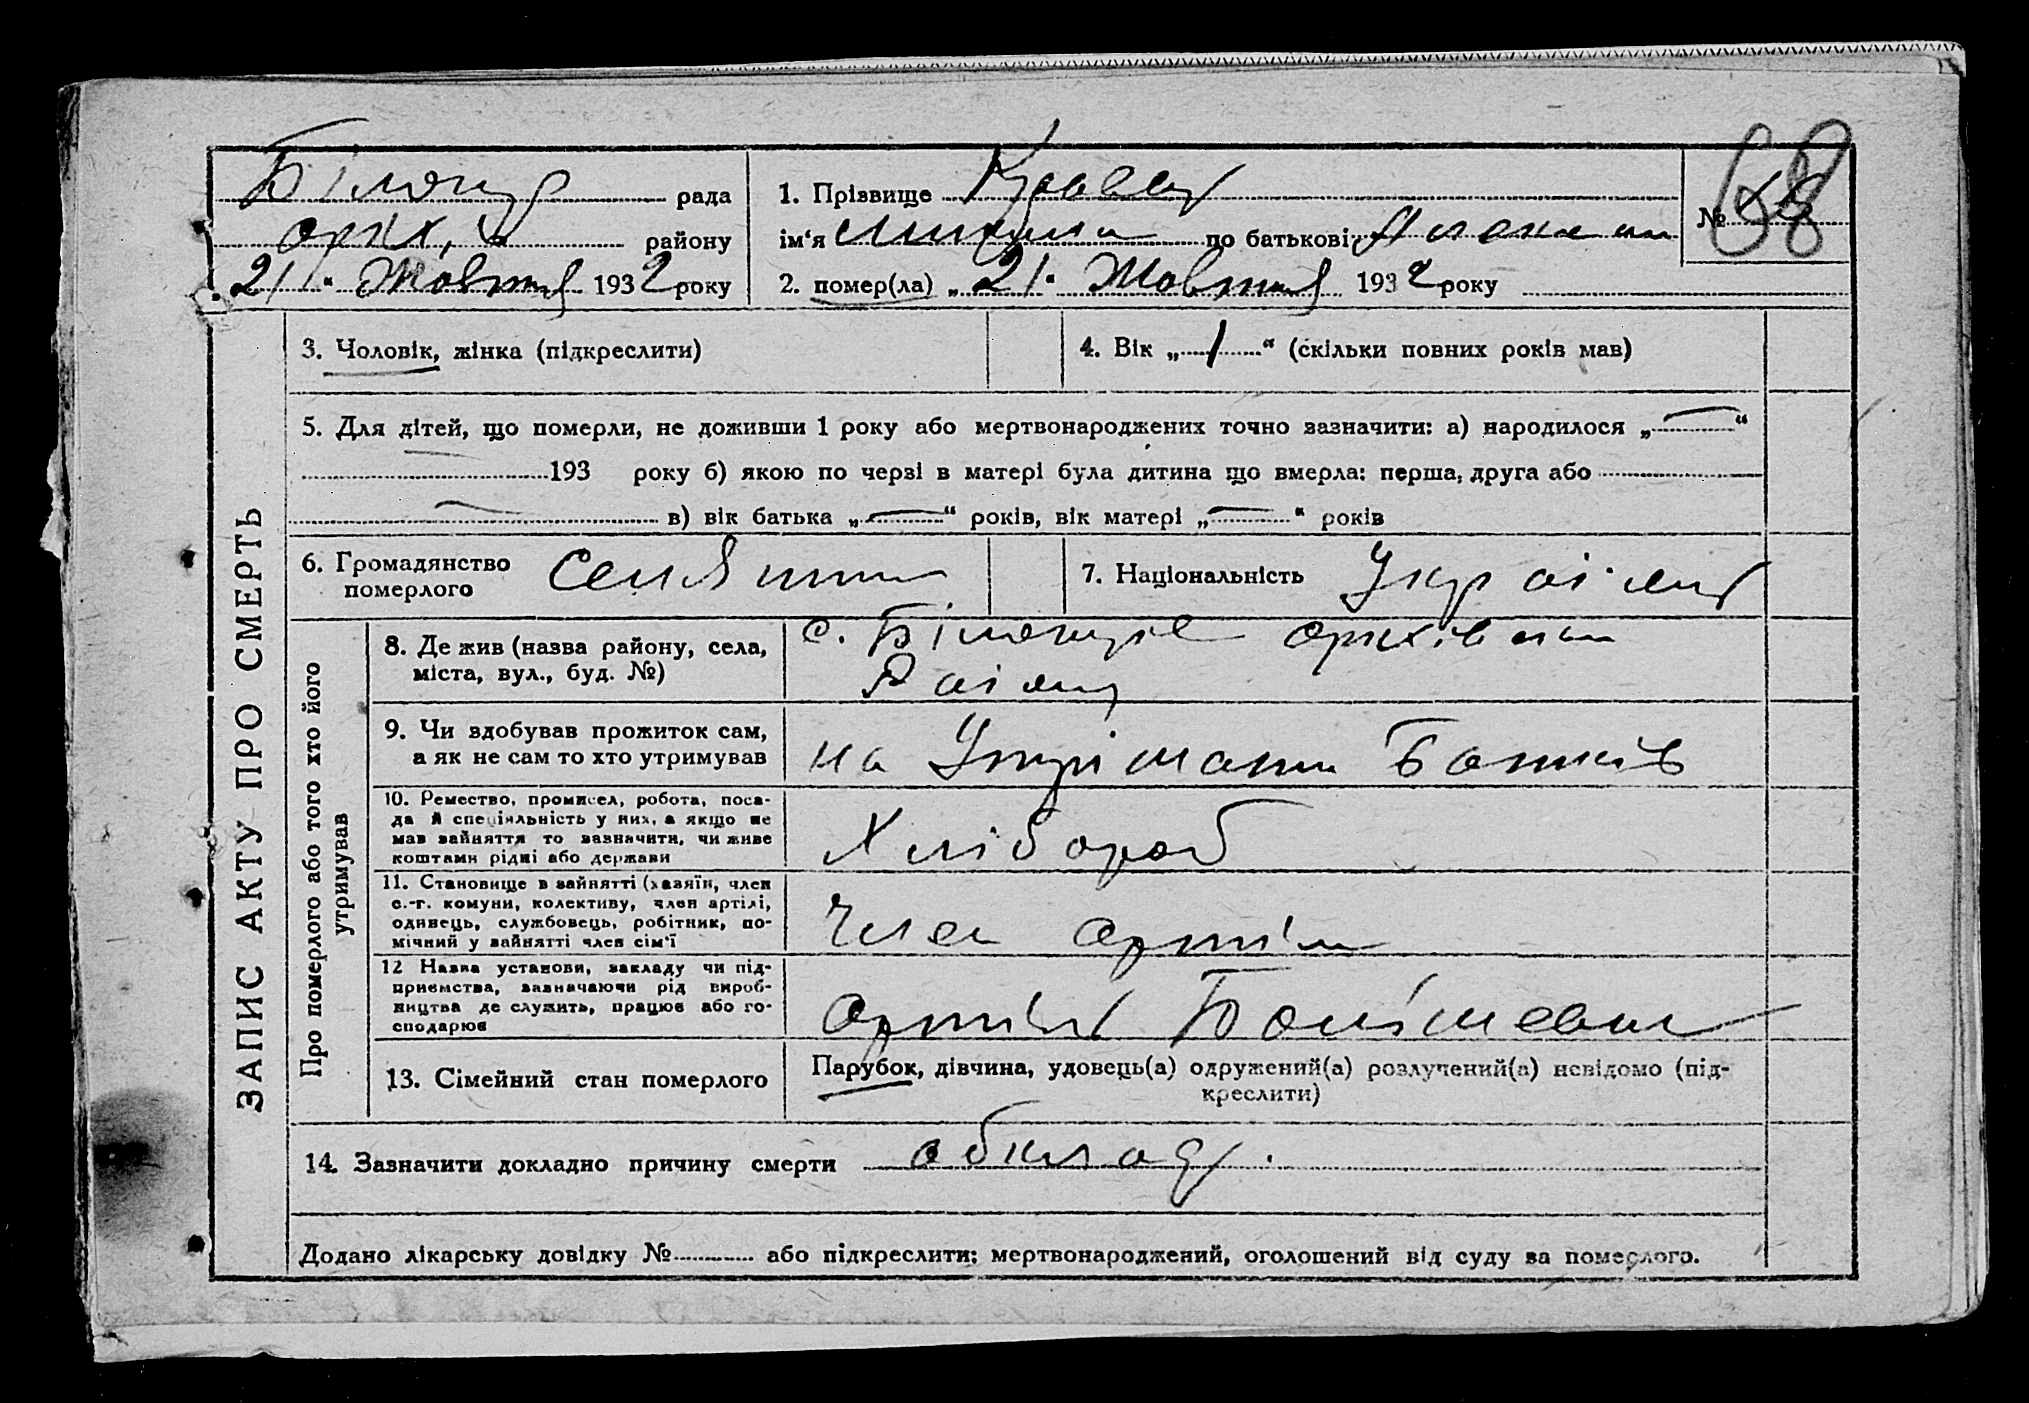 Біленці рада
оріх. району
21 " Жовтня 1932 року
1. Прізвище Кравець
ім'я Микола по батькові
2. помер(ла) „21" Жовтня 1932 року
№ 68
ЗАПИС АКТУ ПРО СМЕРТЬ
3. Чоловік, жінка (підкреслити)
4. Вік „1" (скільки повних років мав)
5. Для дітей, що померли, не доживши 1 року або мертвонароджених точно зазначити: а) народилося „—"
193 року б) якою по черзі в матері була дитина що вмерла: перша, друга або
— в) вік батька „—" років, вік матері „—" років
6. Громадянство
померлого
Селянин
7. Національність
Про померлого або того хто його
утримував
8. Де жив (назва району, села,
міста, вул., буд. №)
с.
Раїону
9. Чи здобував прожиток сам,
а як не сам то хто утримував
на Утриманні Батьків
10. Ремество, промисел, робота, поса-
да й спеціяльність у них, а якщо не
мав зайняття то зазначити, чи живе
коштами рідні або держави
Хлібороб
11. Становище в зайнятті (хазяїн, член
с.-г. комуни, колективу, член артілі,
одинець, службовець, робітник, по-
мічний у зайнятті член сім'ї
Член артіли
12 Назва установи, закладу чи під-
приємства, зазначаючи рід вироб-
ництва де служить, працює або го-
сподарює
артіль
13. Сімейний стан померлого
Парубок, дівчина, удовець(а) одружений(а) розлучений(а) невідомо (під-
креслити)
14. Зазначити докладно причину смерти обклад.
Додано лікарську довідку № або підкреслити: мертвонароджений, оголошений від суду за померлого.